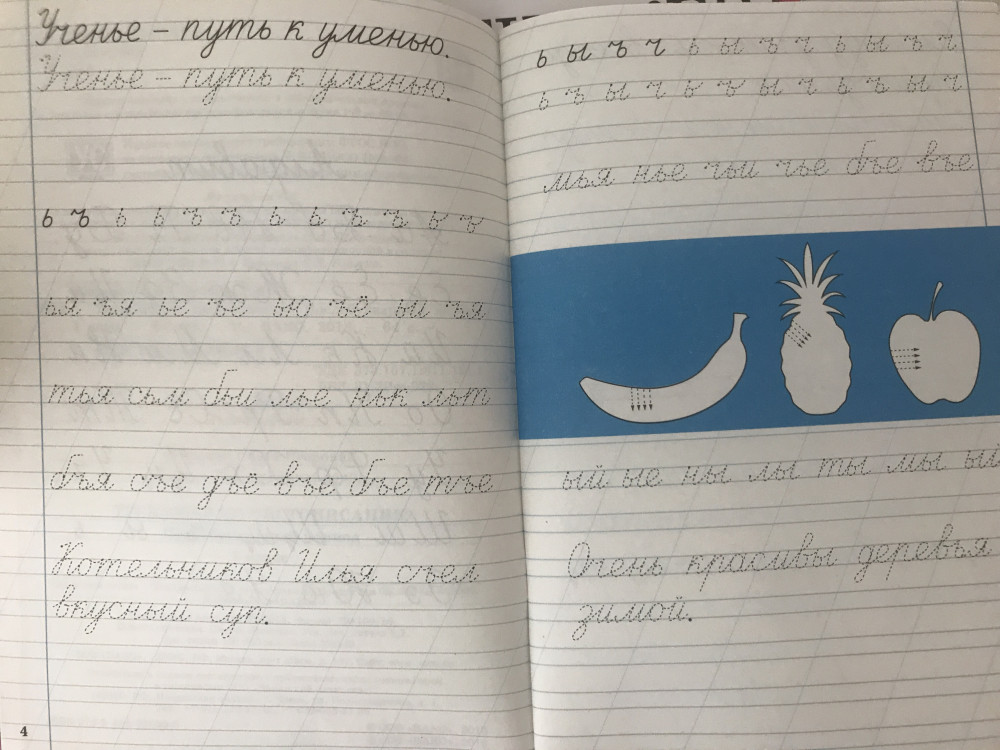 Ученье – путь к уменью.
Ученье – путь к уменью.
ь ъ ь ь ъ ъ ь ь ъ ъ ь ъ
ья ъя ье ъе ью ъё ьи ъя
тья сьм бьи лье ньк льт
бъя съе дъё въе бъе тъе
Котельников Илья съел
вкусный суп.
4
ь ы ъ ч ь ы ъ ч ь ы ъ ч
ь ъ ы ч ь ъ ы ч ь ъ ы ч
мья нье чьи чье бъе въе
ый ые ны лы ты мы
Очень красивы деревья
зимой.